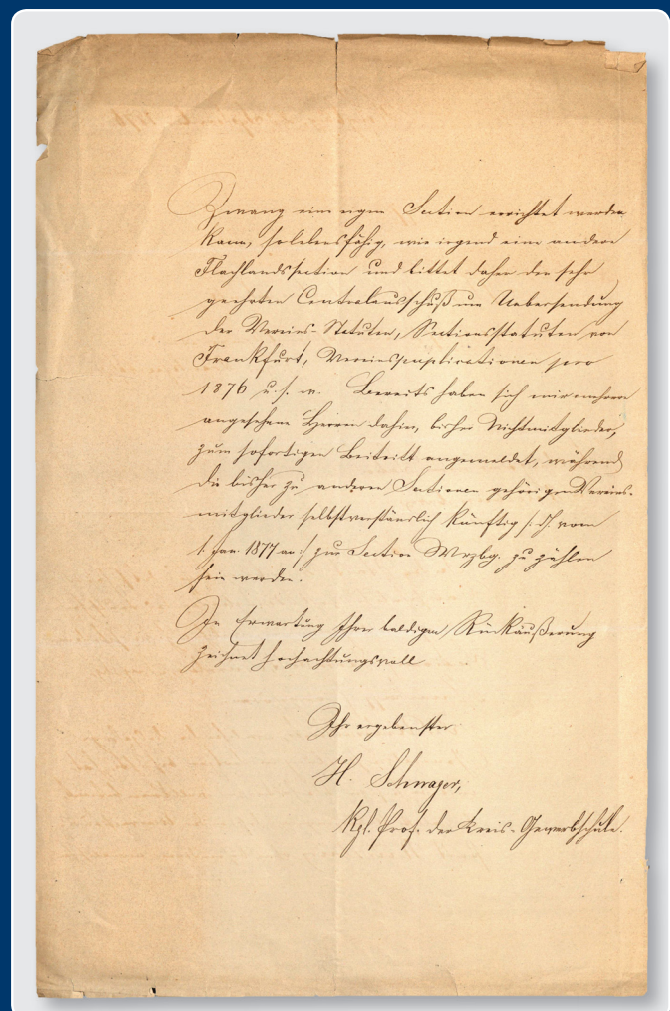 Zwang eine eigene Section errichtet werden
kann, so lebensfähig, wie irgend eine andere
Flachlandssection und bittet daher den sehr
geehrten Centralausschuß um Uebersendung
der Vereins-Statuten, Sectionsstatuten von
Frankfurt, Vereinspublicationen pro
1876 u.s.w. Bereits haben sich mir mehrere
angesehene Herren dahier, bisher Nichtmitglieder,
zum sofortigen Beitritt angemeldet, während
die bisher zu anderen Sectionen gehörigen Vereins-
mitglieder selbstverständlich künftig /: d.h. vom
1. Jan. 1877 an :/ zur Section Wrzbg. zu zählen
sein werden.
In Erwartung Ihrer baldigen Rückäußerung
zeichnet hochachtungsvoll
Ihr ergebenster
H. Schwager,
Kgl. Prof. der Kreis-Gewerbschule.